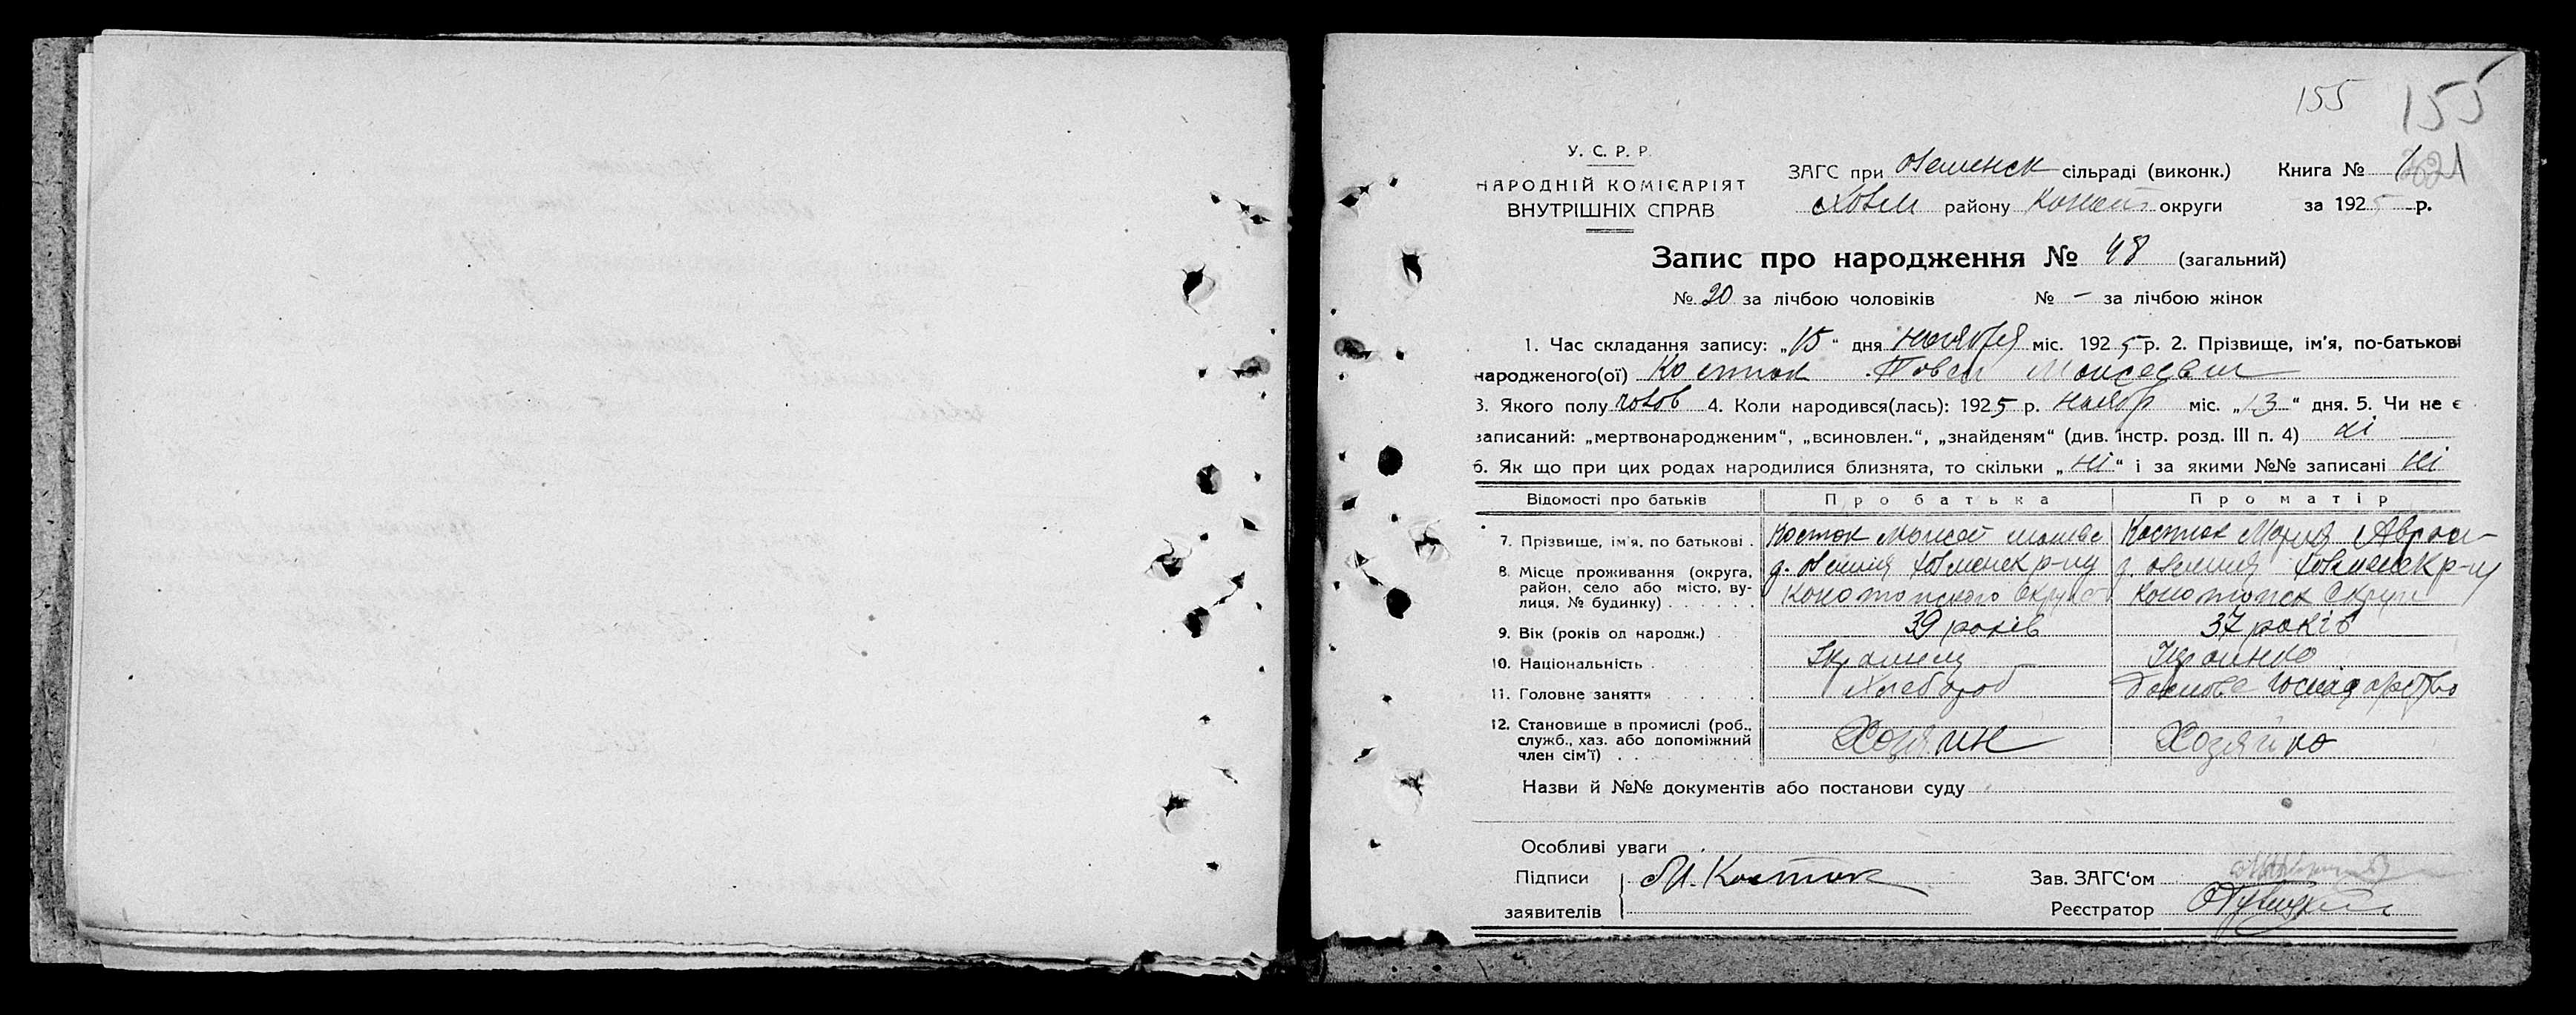 155 155
У. С. Р. Р.
НАРОДНІЙ КОМІСАРІЯТ
ВНУТРІШНІХ СПРАВ
ЗАГС при сільраді (виконк.)
Ховм району Коноп округи
Книга № 1
321
за 1925 р.
Запис про народження № 48 (загальний)
№ 20 за лічбою чоловіків № – за лічбою жінок
1. Час складання запису: „15“ дня ноября міс. 1925 р. 2. Прізвище, ім'я, по-батькові
народженого(ої) Костюк Повел
3. Якого полу чолов 4. Коли народився(лась): 1925 р. ноябр міс. „13“ дня. 5. Чи не є
записаний: „мертвонародженим“, „всиновлен.“, „знайденям“ (див. інстр. розд. III п. 4) ні
6. Як що при цих родах народилися близнята, то скільки „ні“ і за якими №№ записані ні
Відомості про батьків Про батька Про матір
7. Прізвище, ім'я, по батькові Костюк Мойсей Костюк Мария
8. Місце проживання (округа, район, село або місто, вулиця, № будинку) р-ну Конотопского Округа р-ну Конотопск Округи
9. Вік (років од народж.) 39 років 37 років
10. Національність Украинец Украинка
11. Головне заняття Хлебороб Господарство
12. Становище в промислі (роб., служб., хаз. або допоміжний член сім'ї) Хозяин Хозяйка
Назви й №№ документів або постанови суду
Особливі уваги
Підписи заявителів М. Костюк
Зав. ЗАГС'ом
Реєстратор